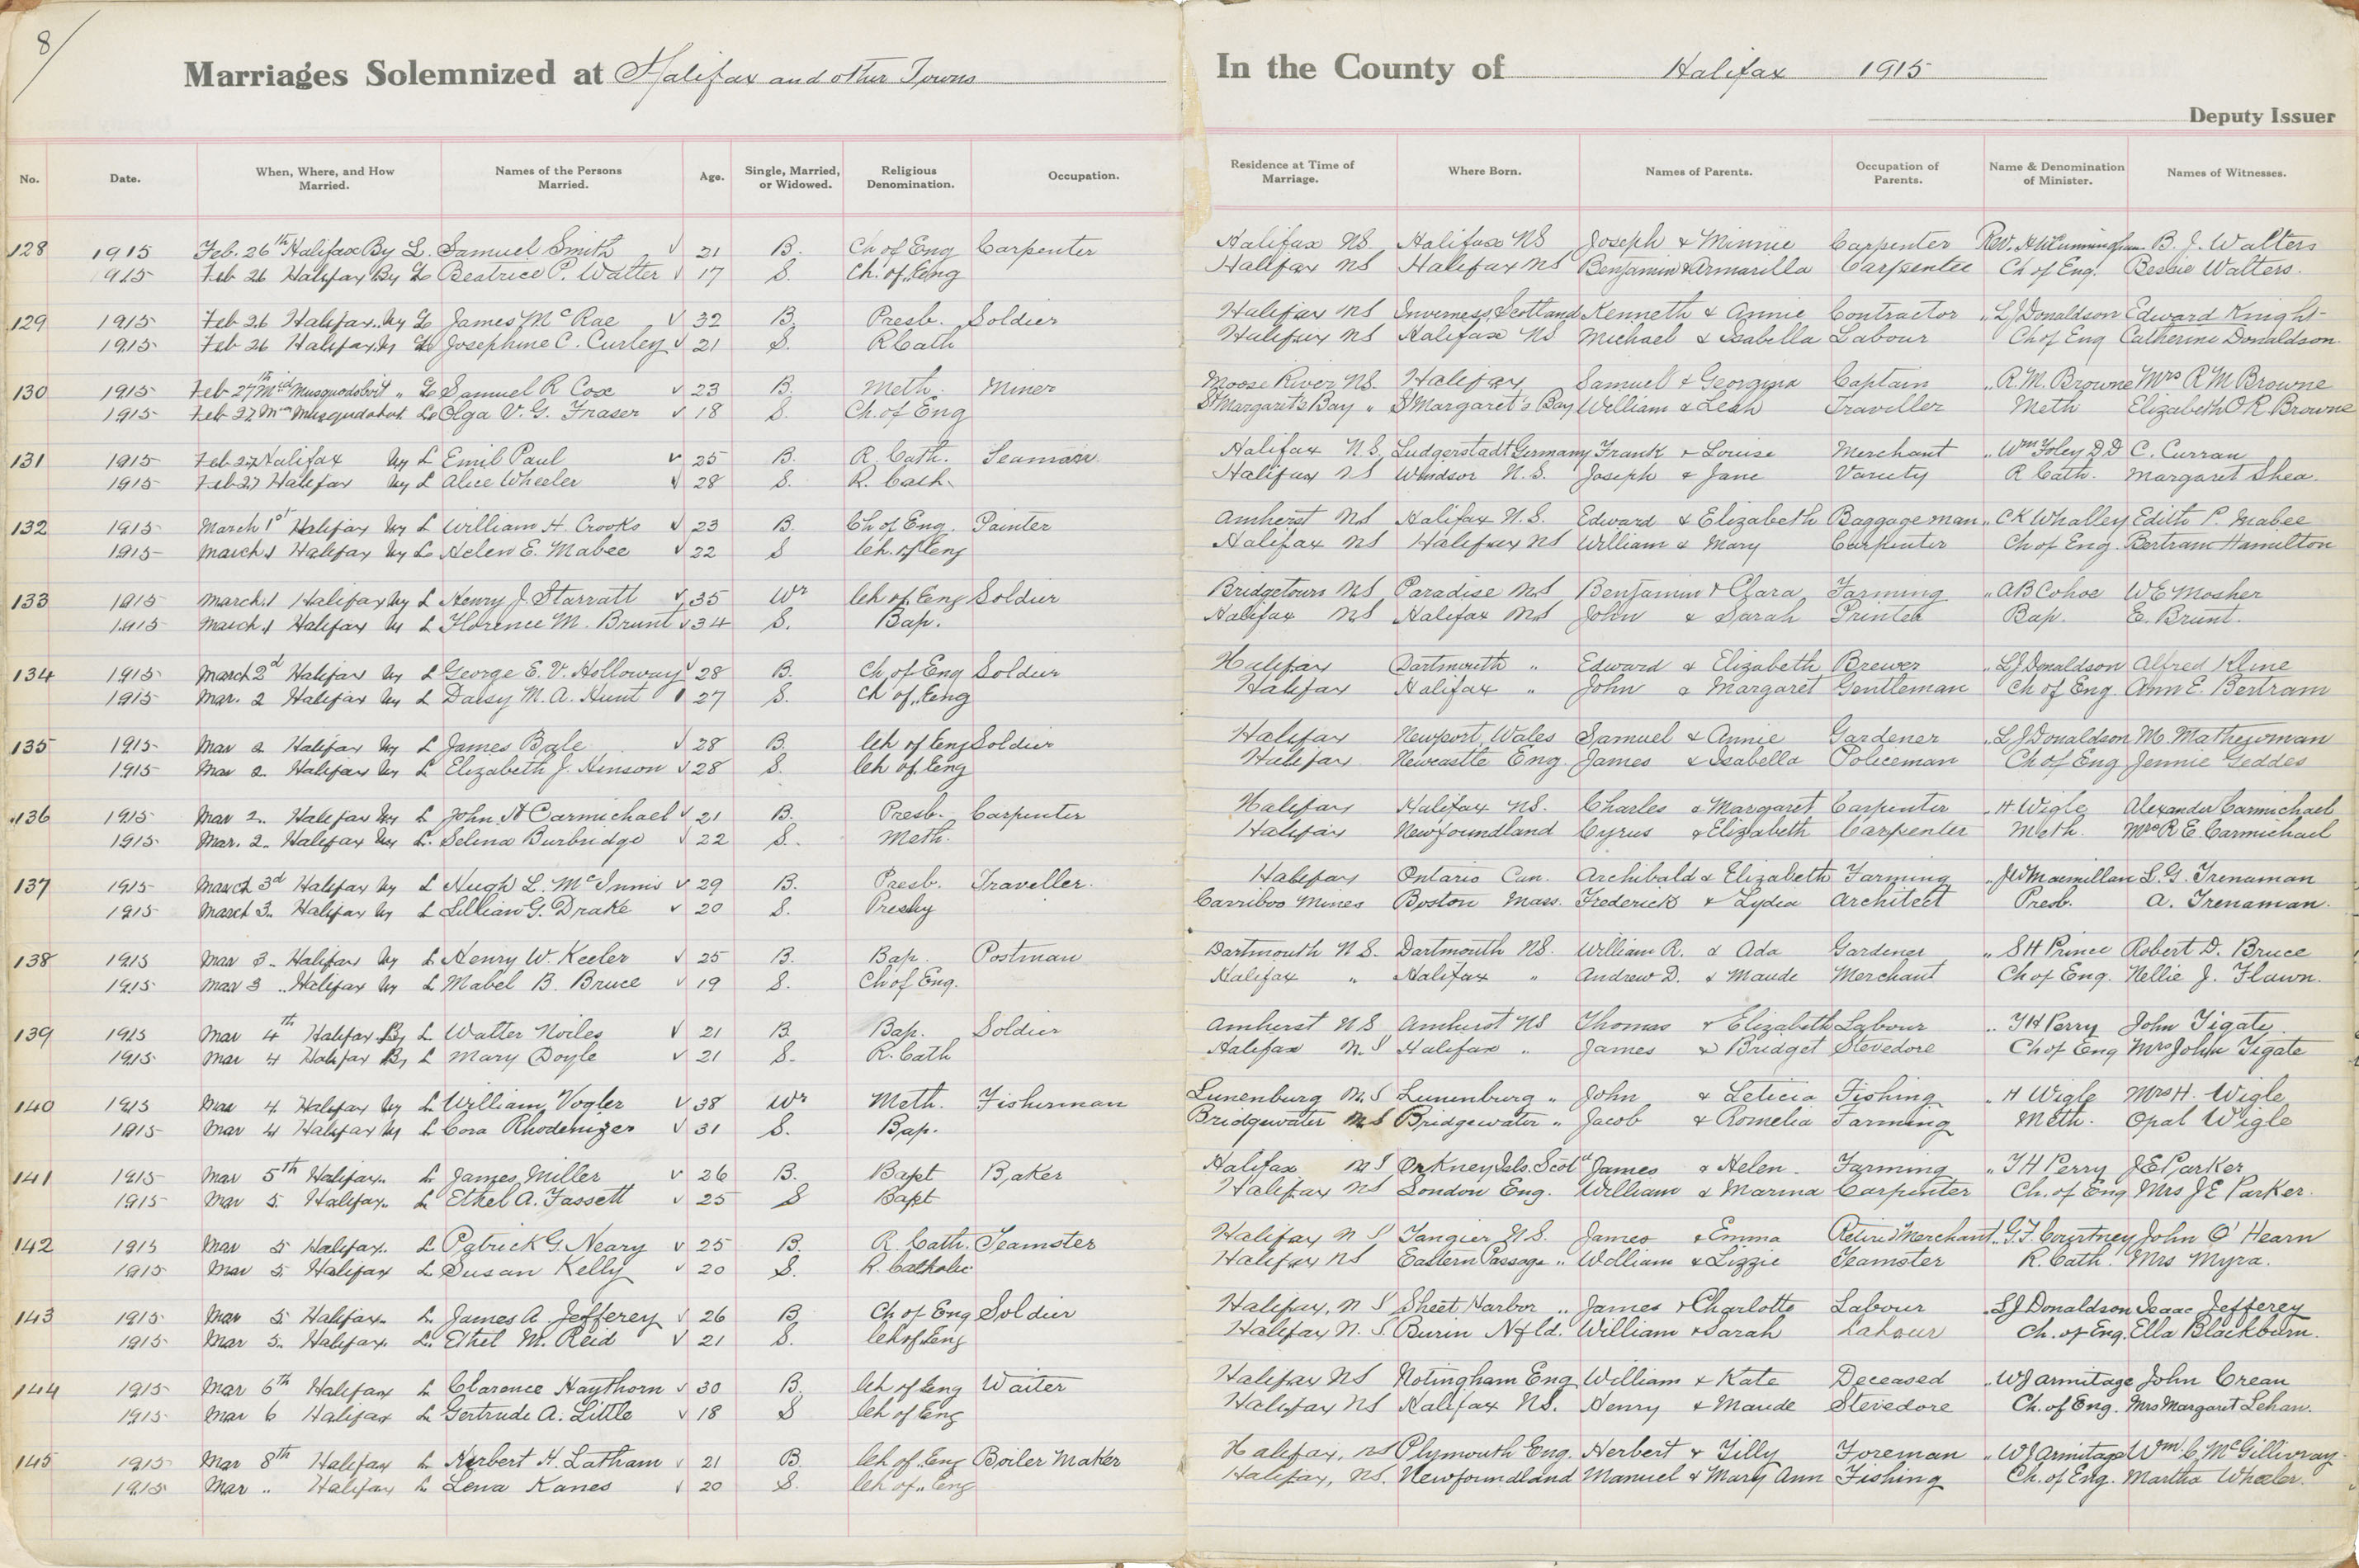 8/
Marriages Solemnized at Halifax and other Towns In the County of Halifax 1915
Deputy Issuer
No. Date. When, Where, and How Married. Names of the Persons Married. Age. Single, Married, or Widowed. Religious Denomination. Occupation. Residence at Time of Marriage. Where Born. Names of Parents. Occupation of Parents. Name & Denomination of Minister. Names of Witnesses.
128 1915 Feb. 26th Halifax By L. Samuel Smith √ 21 B. Ch of Eng Carpenter Halifax NS Halifax NS Joseph & Minnie Carpenter Rev. H W Cunningham B. J. Walters
1915 Feb 26 Halifax By L Beatrice P. Walter √ 17 S. Ch. of Eng Halifax NS Halifax NS Benjamin & Armarilla Carpenter Ch of Eng. Bessie Walters.
129 1915 Feb 26 Halifax. by L James McRae √ 32 B. Presb. Soldier Halifax NS Inverness, Scotland Kenneth & Annie Contractor " L J Donaldson Edward Knight
1915 Feb 26 Halifax by L Josephine C. Curley √ 21 S. R Cath Halifax NS Halifax NS Michael & Isabella Labour Ch of Eng Catherine Donaldson.
130 1915 Feb 27th Mid Musquodoboit " L Samuel R Cox √ 23 B. Meth. Miner Moose River NS. Halifax Samuel & Georgina Captain " R. M. Browne Mrs R M Browne
1915 Feb 27 Musquodoboit L Olga V. G. Fraser √ 18 S. Ch. of Eng St Margarets Bay " St Margaret's Bay William & Leah Traveller Meth Elizabeth O R. Browne
131 1915 Feb 27 Halifax by L Emil Paul √ 25 B. R. Cath. Seaman Halifax N.S. Ludgerstadt Germany Frank & Louise Merchant " Wm Foley D D C. Curran
1915 Feb 27 Halifax by L Alice Wheeler √ 28 S. R. Cath. Halifax NS Windsor N.S. Joseph & Jane Variety R Cath. Margaret Shea.
132 1915 March 1st Halifax by L William H. Crooks √ 23 B. Ch of Eng. Painter Amherst NS Halifax N.S. Edward & Elizabeth Baggageman " C K Whalley Edith P. Mabee
1915 March 1 Halifax by L Helen E. Mabee √ 22 S Ch. of Eng Halifax NS Halifax NS William & Mary Carpenter Ch of Eng. Bertram Hamilton
133 1915 March 1 Halifax by L Henry J. Starratt √ 35 Wr Ch of Eng Soldier Bridgetown NS Paradise NS Benjamin & Clara Farming " A B Cohoe W E Mosher
1915 March 1 Halifax by L Florence M. Brunt √ 34 S. Bap. Halifax NS Halifax NS John & Sarah Printer Bap. E. Brunt.
134 1915 March 2d Halifax by L George E. V. Holloway √ 28 B. Ch of Eng Soldier Halifax Dartmouth " Edward & Elizabeth Brewer " L J Donaldson Alfred Kline
1915 Mar. 2 Halifax by L Daisy M. A. Hunt √ 27 S. Ch of Eng Halifax Halifax " John & Margaret Gentleman Ch of Eng. Ann E. Bertram
135 1915 Mar 2 Halifax by L James Bale √ 28 B. Ch of Eng Soldier Halifax Newport, Wales Samuel & Annie Gardener " L J Donaldson M. Mathewman
1915 Mar 2. Halifax by L Elizabeth J. Hinson √ 28 S. Ch of Eng Halifax Newcastle Eng. James & Isabella Policeman Ch of Eng Jennie Geddes
136 1915 Mar 2. Halifax by L John H Carmichael √ 21 B. Presb. Carpenter Halifax Halifax NS. Charles & Margaret Carpenter " H. Wigle Alexander Carmichael
1915 Mar. 2. Halifax by L. Selina Burbridge √ 22 S. Meth. Halifax Newfoundland Cyrus & Elizabeth Carpenter Meth. Mrs R. E. Carmichael
137 1915 March 3d Halifax by L Hugh L. McInnis √ 29 B. Presb. Traveller. Halifax Ontario Can. Archibald & Elizabeth Farming " J W Macmillan L. G. Trenaman
1915 March 3. Halifax by L Lillian G. Drake √ 20 S. Presby Carriboo Mines Boston Mass. Frederick & Lydia Architect Presb. A. Trenaman.
138 1915 Mar 3. Halifax by L Henry W. Keeler √ 25 B. Bap. Postman Dartmouth N.S. Dartmouth NS. William R. & Ada Gardener " S H Prince Robert D. Bruce
1915 Mar 3 .. Halifax by L Mabel B. Bruce √ 19 S. Ch of Eng. Halifax " Halifax " Andrew D. & Maude Merchant Ch of Eng. Nellie J. Flawn.
139 1915 Mar 4th Halifax By L Walter Noiles √ 21 B. Bap. Soldier Amherst NS Amherst NS Thomas & Elizabeth Labour " T H Perry John Tigate.
1915 Mar 4 Halifax By L Mary Doyle √ 21 S. R. Cath Halifax N.S Halifax " James & Bridget Stevedore Ch of Eng Mrs John Tigate
140 1915 Mar 4 Halifax by L William Vogler √ 38 Wr Meth. Fisherman Lunenburg N.S Lunenburg " John & Leticia Fishing " H Wigle Mrs H. Wigle
1915 Mar 4 Halifax by L Cora Rhodenizer √ 31 S. Bap. Bridgewater NS Bridgewater " Jacob & Romelia Farming Meth. Opal Wigle
141 1915 Mar 5th Halifax. L James Miller √ 26 B. Bapt Baker Halifax NS Orkney Isls. Scotd James & Helen. Farming " T H Perry J E Parker
1915 Mar 5. Halifax. L Ethel A. Fassett √ 25 S Bapt Halifax NS London Eng. William & Marina Carpenter Ch. of Eng Mrs J E Parker.
142 1915 Mar 5 Halifax. L Patrick G. Neary √ 25 B. R. Cath. Teamster Halifax N S Tangier N.S. James & Emma Retired Merchant " G. F. Courtney John O'Hearn
1915 Mar 5. Halifax L Susan Kelly √ 20 S. R. Catholic Halifax NS Eastern Passage " William & Lizzie Teamster R. Cath. Mrs Myra.
143 1915 Mar 5 Halifax. L. James A Jefferey √ 26 B Ch of Eng Soldier Halifax, N S Sheet Harbor " James & Charlotte Labour " L J Donaldson Isaac Jefferey
1915 Mar 5. Halifax. L. Ethel M. Reid √ 21 S. Ch of Eng Halifax N. S. Burin Nfld. William & Sarah Labour Ch. of Eng. Ella Blackburn.
144 1915 Mar 6th Halifax L Clarence Haythorn √ 30 B. Ch of Eng Waiter Halifax NS Notingham Eng William & Kate Deceased " W J Armitage John Crean
1915 Mar 6 Halifax L Gertrude A. Little √ 18 S Ch of Eng Halifax NS Halifax NS. Henry & Maude Stevedore Ch. of Eng. Mrs Margaret Lehan.
145 1915 Mar 8th Halifax L Herbert H. Latham √ 21 B. Ch of Eng Boiler Maker Halifax, NS Plymouth Eng. Herbert & Tilly Foreman " W J Armitage Wm. C. McGillivray.
1915 Mar " Halifax L Lena Kanes √ 20 S. Ch of Eng Halifax, NS. Newfoundland Manuel & Mary Ann Fishing Ch. of Eng. Martha Wheeler.